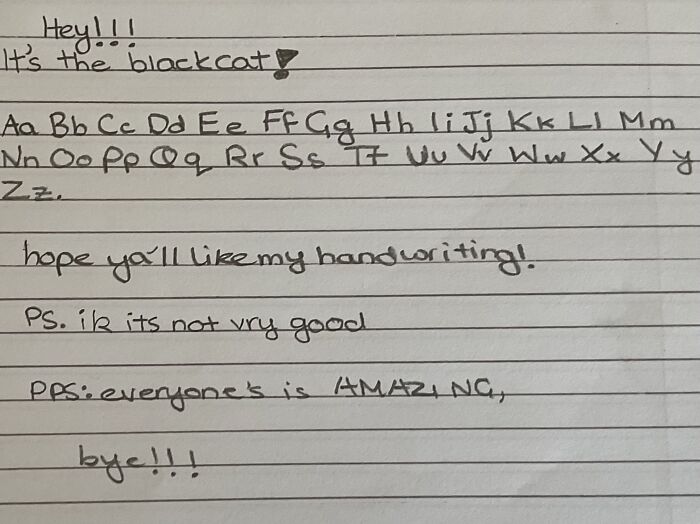 Hey!!!
It's the blackcat!
Aa Bb Cc Dd Ee Ff Gg Hh Ii Jj Kk Ll Mm
Nn Oo Pp Qq Rr Ss Tt Uu Vv Ww Xx Yy
Zz.
hope ya'll like my handwriting!
PS. ik its not vry good
PPS: everyone's is AMAZING,
bye!!!